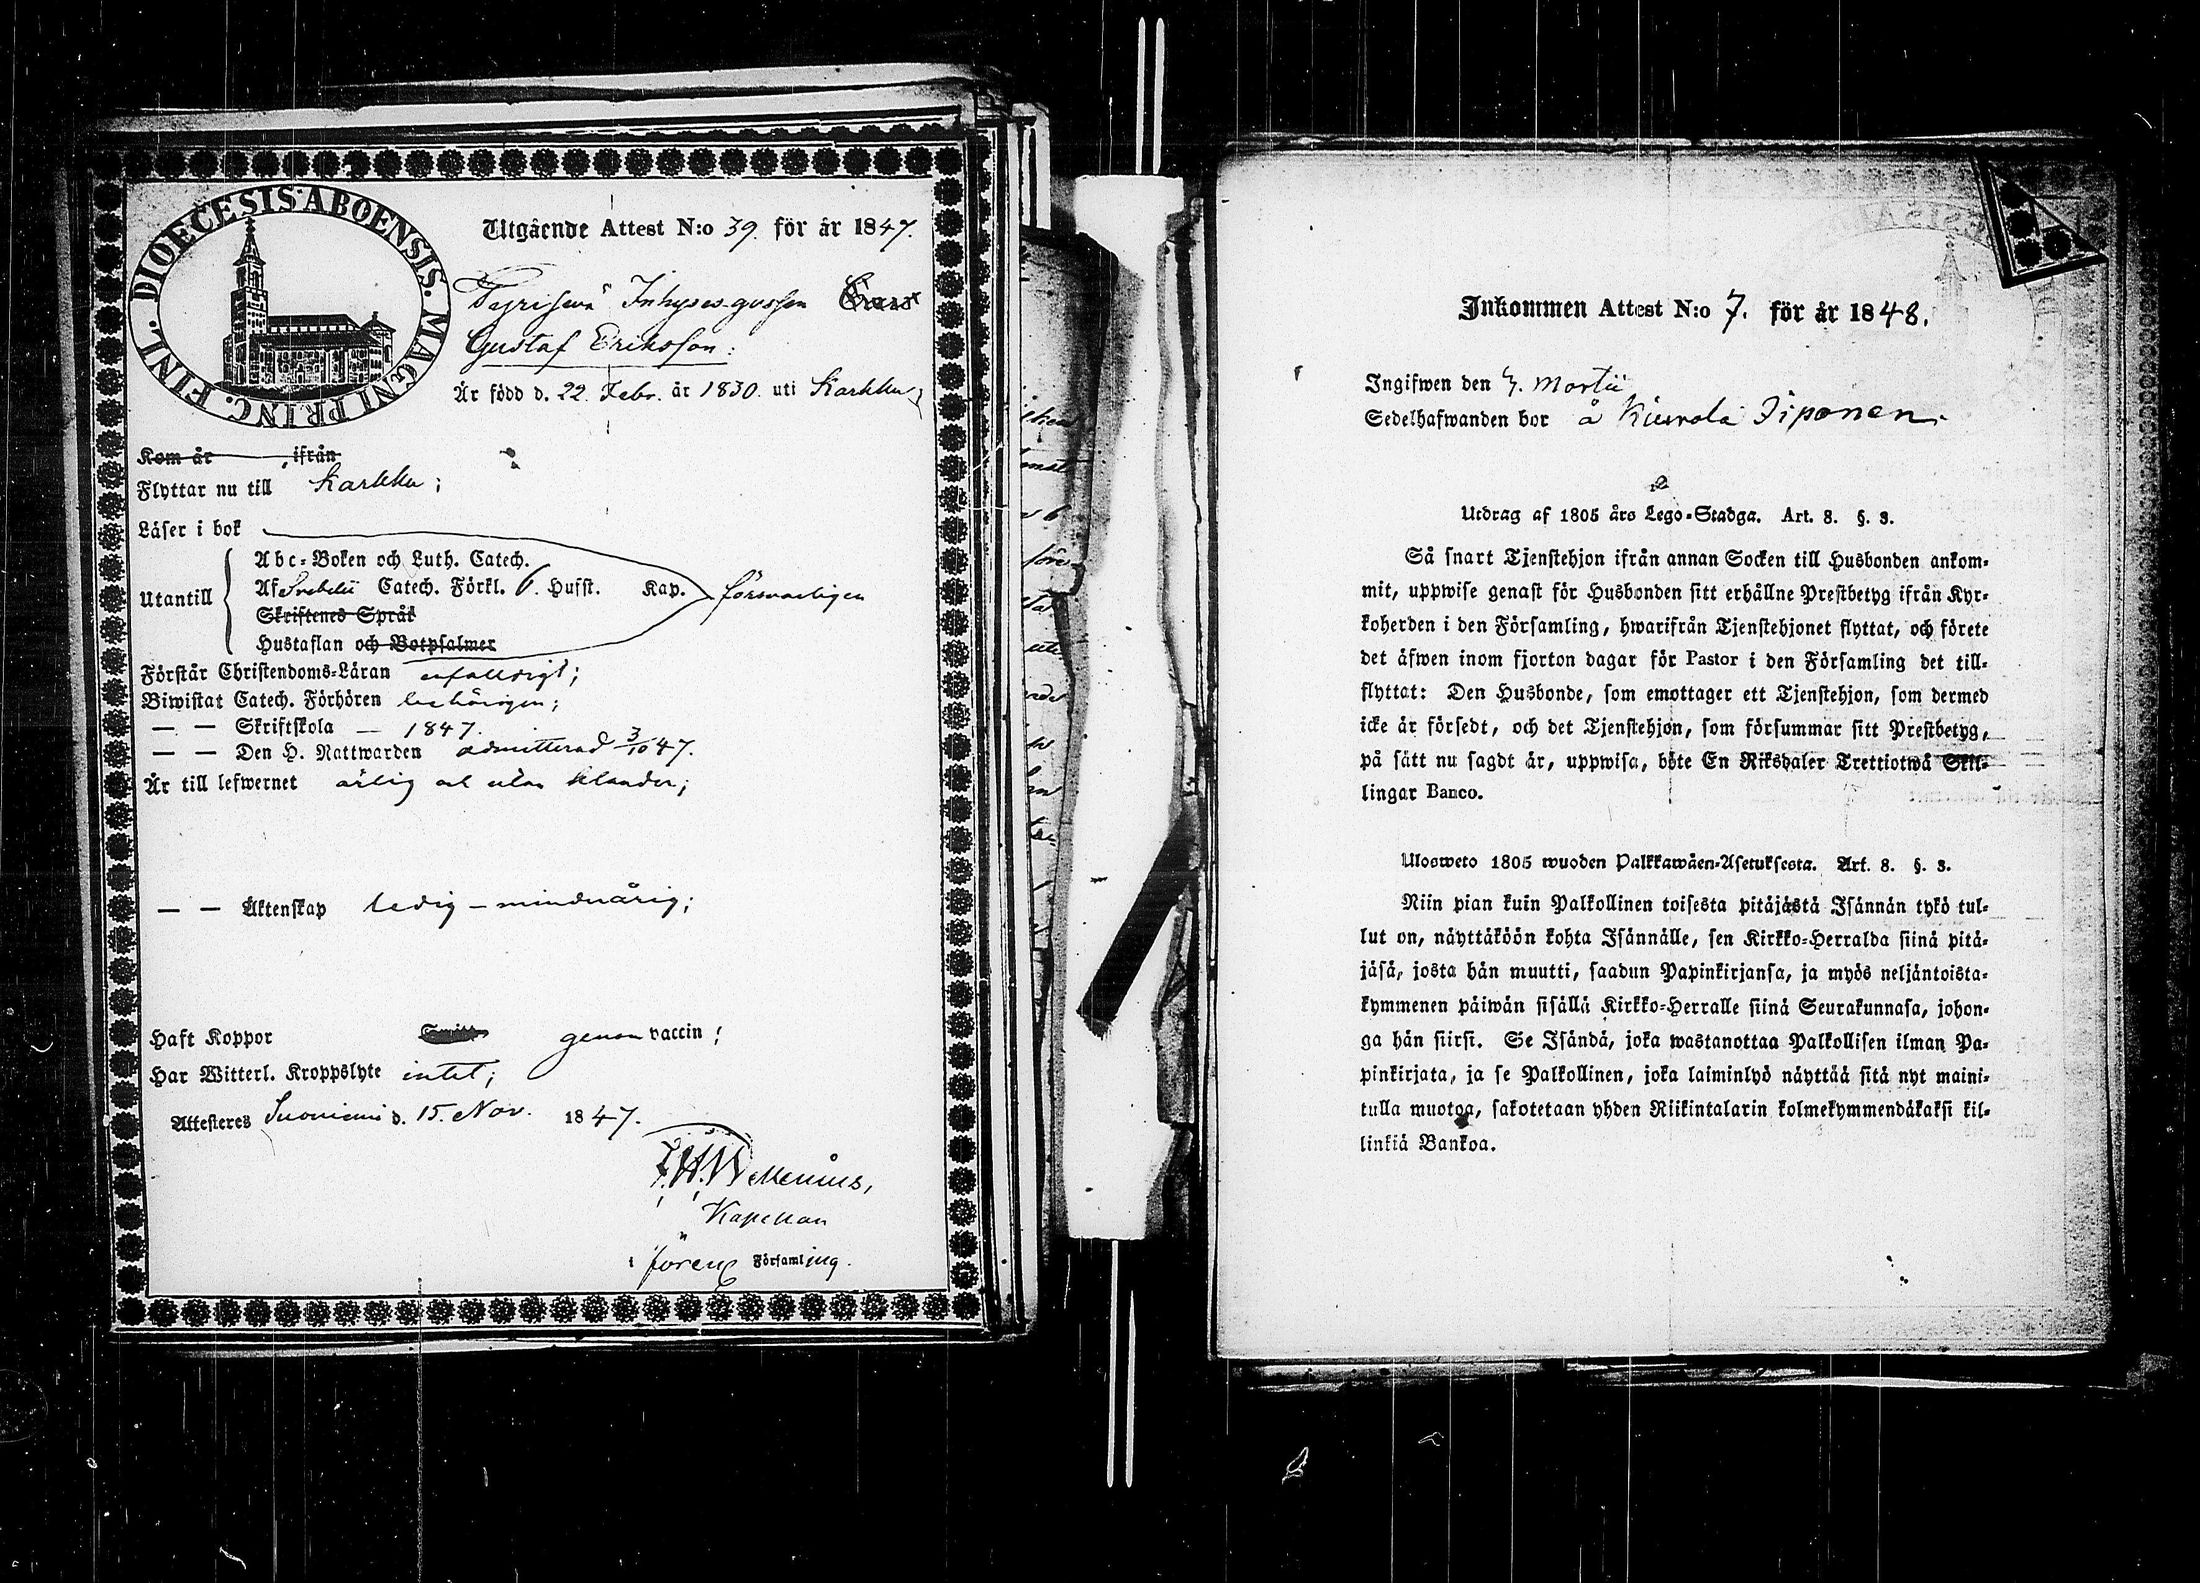 DIOECESIS ABOENSIS. MAGNI PRINC. FINL.
Utgående Attest N:o 39. för år 1847.
Inhyses-gossen
Gustaf Eriksson.
Är född d. 22. Febr. år 1830. uti Karkku;
Kom år ifrån
Flyttar nu till Karkku;
Läser i bok
Utantill
Abc-Boken och Luth. Catech.
Af Svebelii Catech. Förkl. 6. Husst. Kap. försvarligen
Skriftenes Språk
Hustaflan och Botpsalmer
Förstår Christendoms-Läran enfalldigt;
Biwistat Catech. Förhören behörigen;
— — Skriftskola — 1847.
— — Den H. Nattwarden admitterad 3/10 47.
Är till lefwernet ärlig och utan klander;
— — Äktenskap ledig – minderårig;
Haft Koppor genom vaccin;
Har Witterl. Kroppslyte intet;
Attesteres Suoniemi d. 15. Nov. 1847.
Kapellan
i Församling.
Inkommen Attest N:o 7. för år 1848.
Ingifwen den 7. Martii
Sedelhafwanden bor å
Utdrag af 1805 års Lego-Stadga. Art. 8. §. 3.
Så snart Tjenstehjon ifrån annan Socken till Husbonden ankom-
mit, uppwise genast för Husbonden sitt erhållne Prestbetyg ifrån Kyr-
koherden i den Församling, hwarifrån Tjenstehjonet flyttat, och förete
det äfwen inom fjorton dagar för Pastor i den Församling det till-
flyttat: Den Husbonde, som emottager ett Tjenstehjon, som dermed
icke är försedt, och det Tjenstehjon, som försummar sitt Prestbetyg,
på sätt nu sagdt är, uppwisa, böte En Riksdaler Trettiotwå Skil-
lingar Banco.
Ulosweto 1805 wuoden Palkkawäen-Asetuksesta. Art. 8. §. 3.
Niin pian kuin Palkollinen toisesta pitäjästä Isännän tykö tul-
lut on, näyttäköön kohta Isännälle, sen Kirkko-Herralda siinä pitä-
jäsä, josta hän muutti, saadun Papinkirjansa, ja myös neljäntoista-
kymmenen päiwän sisällä Kirkko-Herralle siinä Seurakunnasa, johon-
ga hän siirsi. Se Isändä, joka wastanottaa Palkollisen ilman Pa-
pinkirjata, ja se Palkollinen, joka laiminlyö näyttää sitä nyt maini-
tulla muotoa, sakotetaan yhden Riikintalarin kolmekymmendäkaksi kil-
linkiä Bankoa.